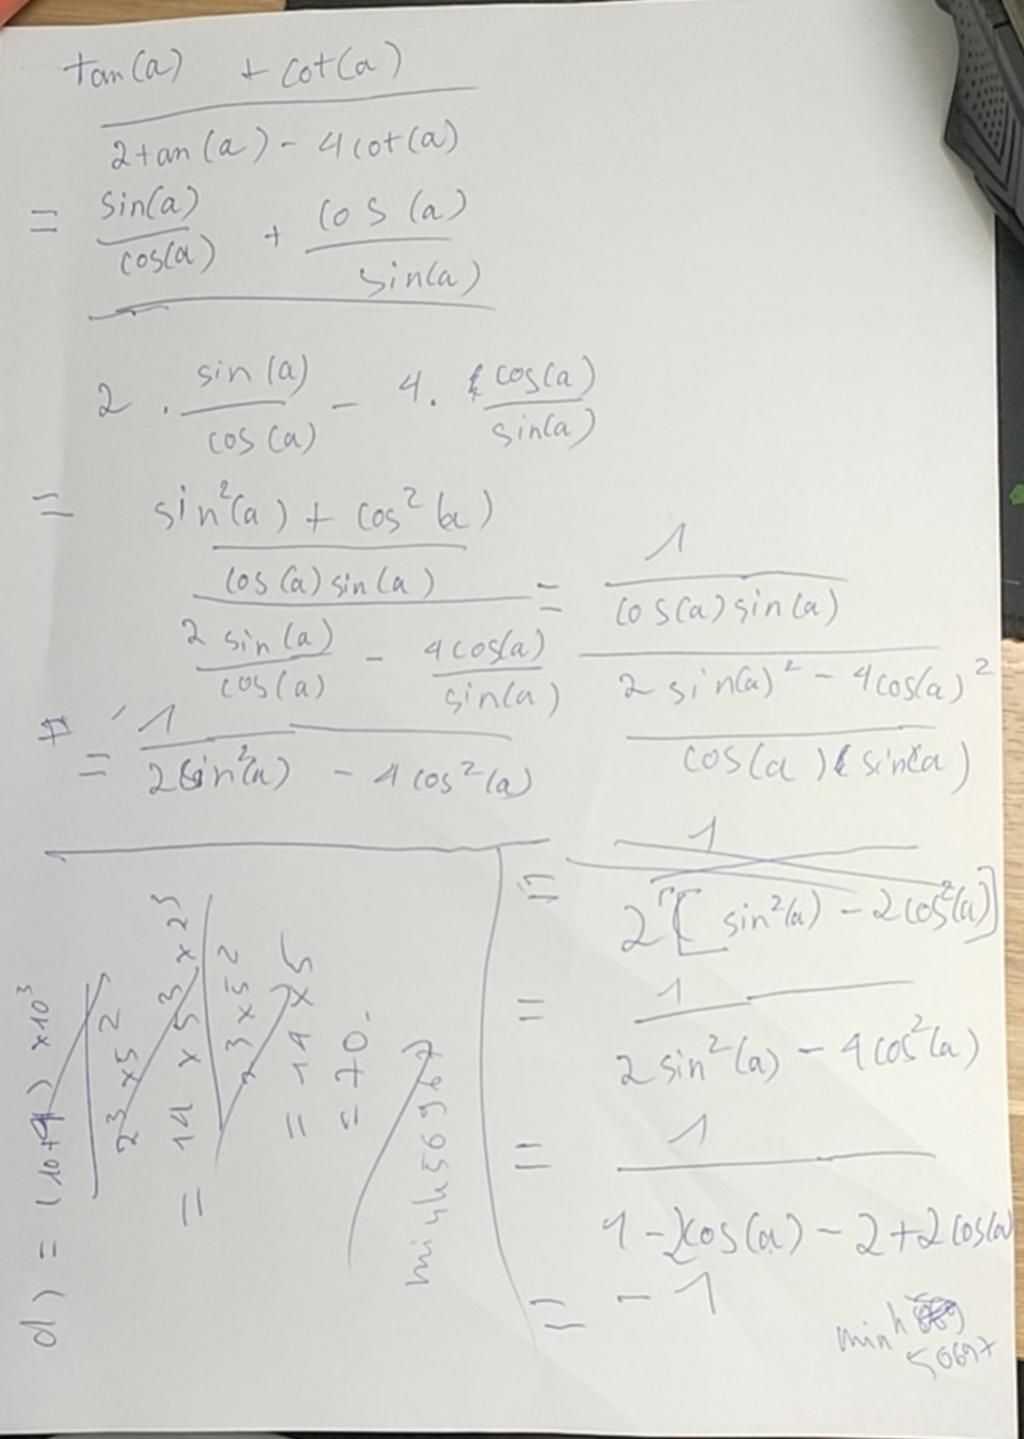 tan(a) + cot(a)
2tan(a) - 4cot(a)
= sin(a) + cos(a)
cos(a) sin(a)
2 . sin(a) - 4. cos(a)
cos(a) sin(a)
= sin²(a) + cos²(a)
cos(a) sin(a)
2 sin(a) - 4cos(a)
cos(a) sin(a)
= 1
cos(a) sin(a)
2 sin(a)² - 4cos(a)²
cos(a)(sin(a)
= 1
2sin²(a) - 4cos²(a)
= 1
2[sin²(a) - 2cos²(a)]
= 1
2sin²(a) - 4cos²(a)
= 1
1-2cos(a) - 2+2cos(a)
= -1
minh
50697
d) = (10+4) x10³
2³ x5²
= 14 x 5³ x 2³
2³ x5²
= 14 x 5
= 70.
minh50967